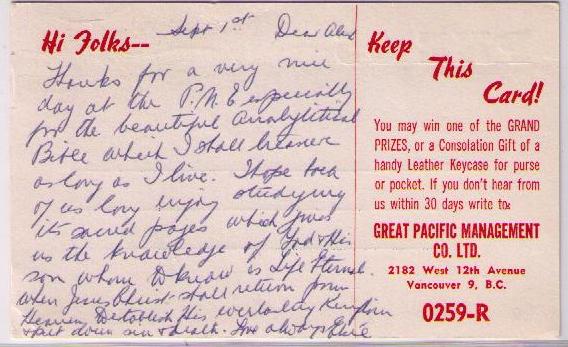 Hi Folks-- Sept 1st Dear Alex
Thanks for a very nice
day at the P.N.E especially
for the beautiful Analytical
Bible which I shall treasure
as long as I live. I hope both
of us long enjoy studying
its sacred pages which gives
us the knowledge of God & His
son whom to know is Life Eternal.
When Jesus Christ shall return from
Heaven to establish His everlasting Kingdom
& put down sin & death. Love always
Keep
This
Card!
You may win one of the GRAND
PRIZES, or a Consolation Gift of a
handy Leather Keycase for purse
or pocket. If you don't hear from
us within 30 days write to:
GREAT PACIFIC MANAGEMENT
CO. LTD.
2182 West 12th Avenue
Vancouver 9, B.C.
0259-R